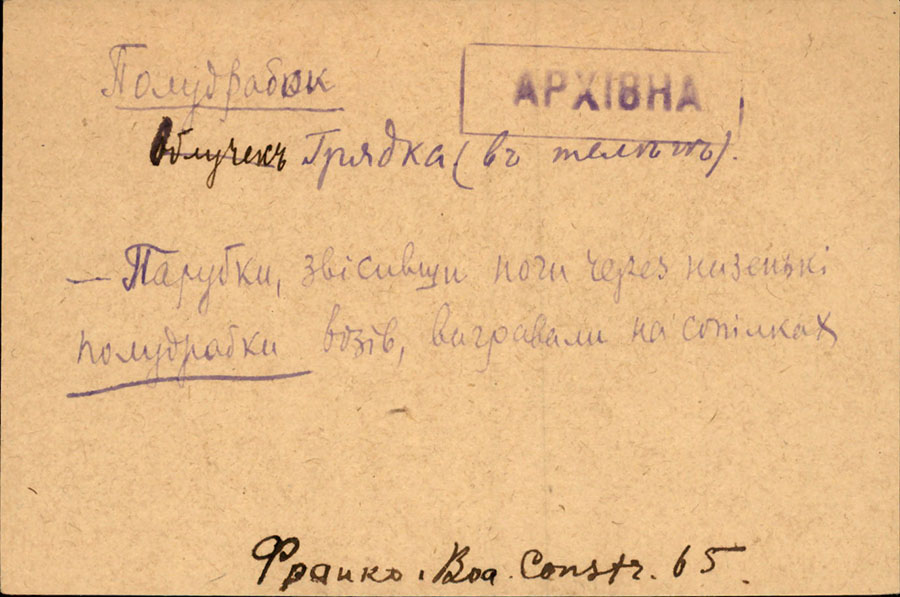 Полудрабок
АРХІВНА
Облучекъ Грядка (въ телѣгѣ).
— Парубки, звісивши ноги через низенькі
полудрабки возів, вигравали на сопілках
Франко. Boa. Constr. 65.